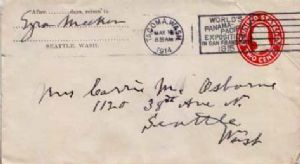 After.......... days, return to
Ezra Meeker
SEATTLE, WASH.
TACOMA, WASH.
MAY
8:30 AM
1914
WORLD'S
PANAMA
PACIFIC
EXPOSITION
IN SAN FRANCISCO
1915
UNITED STATES
TWO CENTS
Mrs Carrie M Osborne
1120 38th Ave N
Seattle
Wash